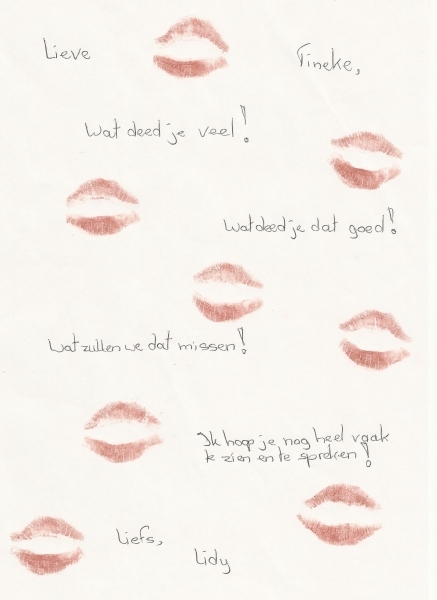 Lieve Tineke,
Wat deed je veel!
Wat deed je dat goed!
Wat zullen we dat missen!
Ik hoop je nog heel vaak
te zien en te spreken!
Liefs,
Lidy